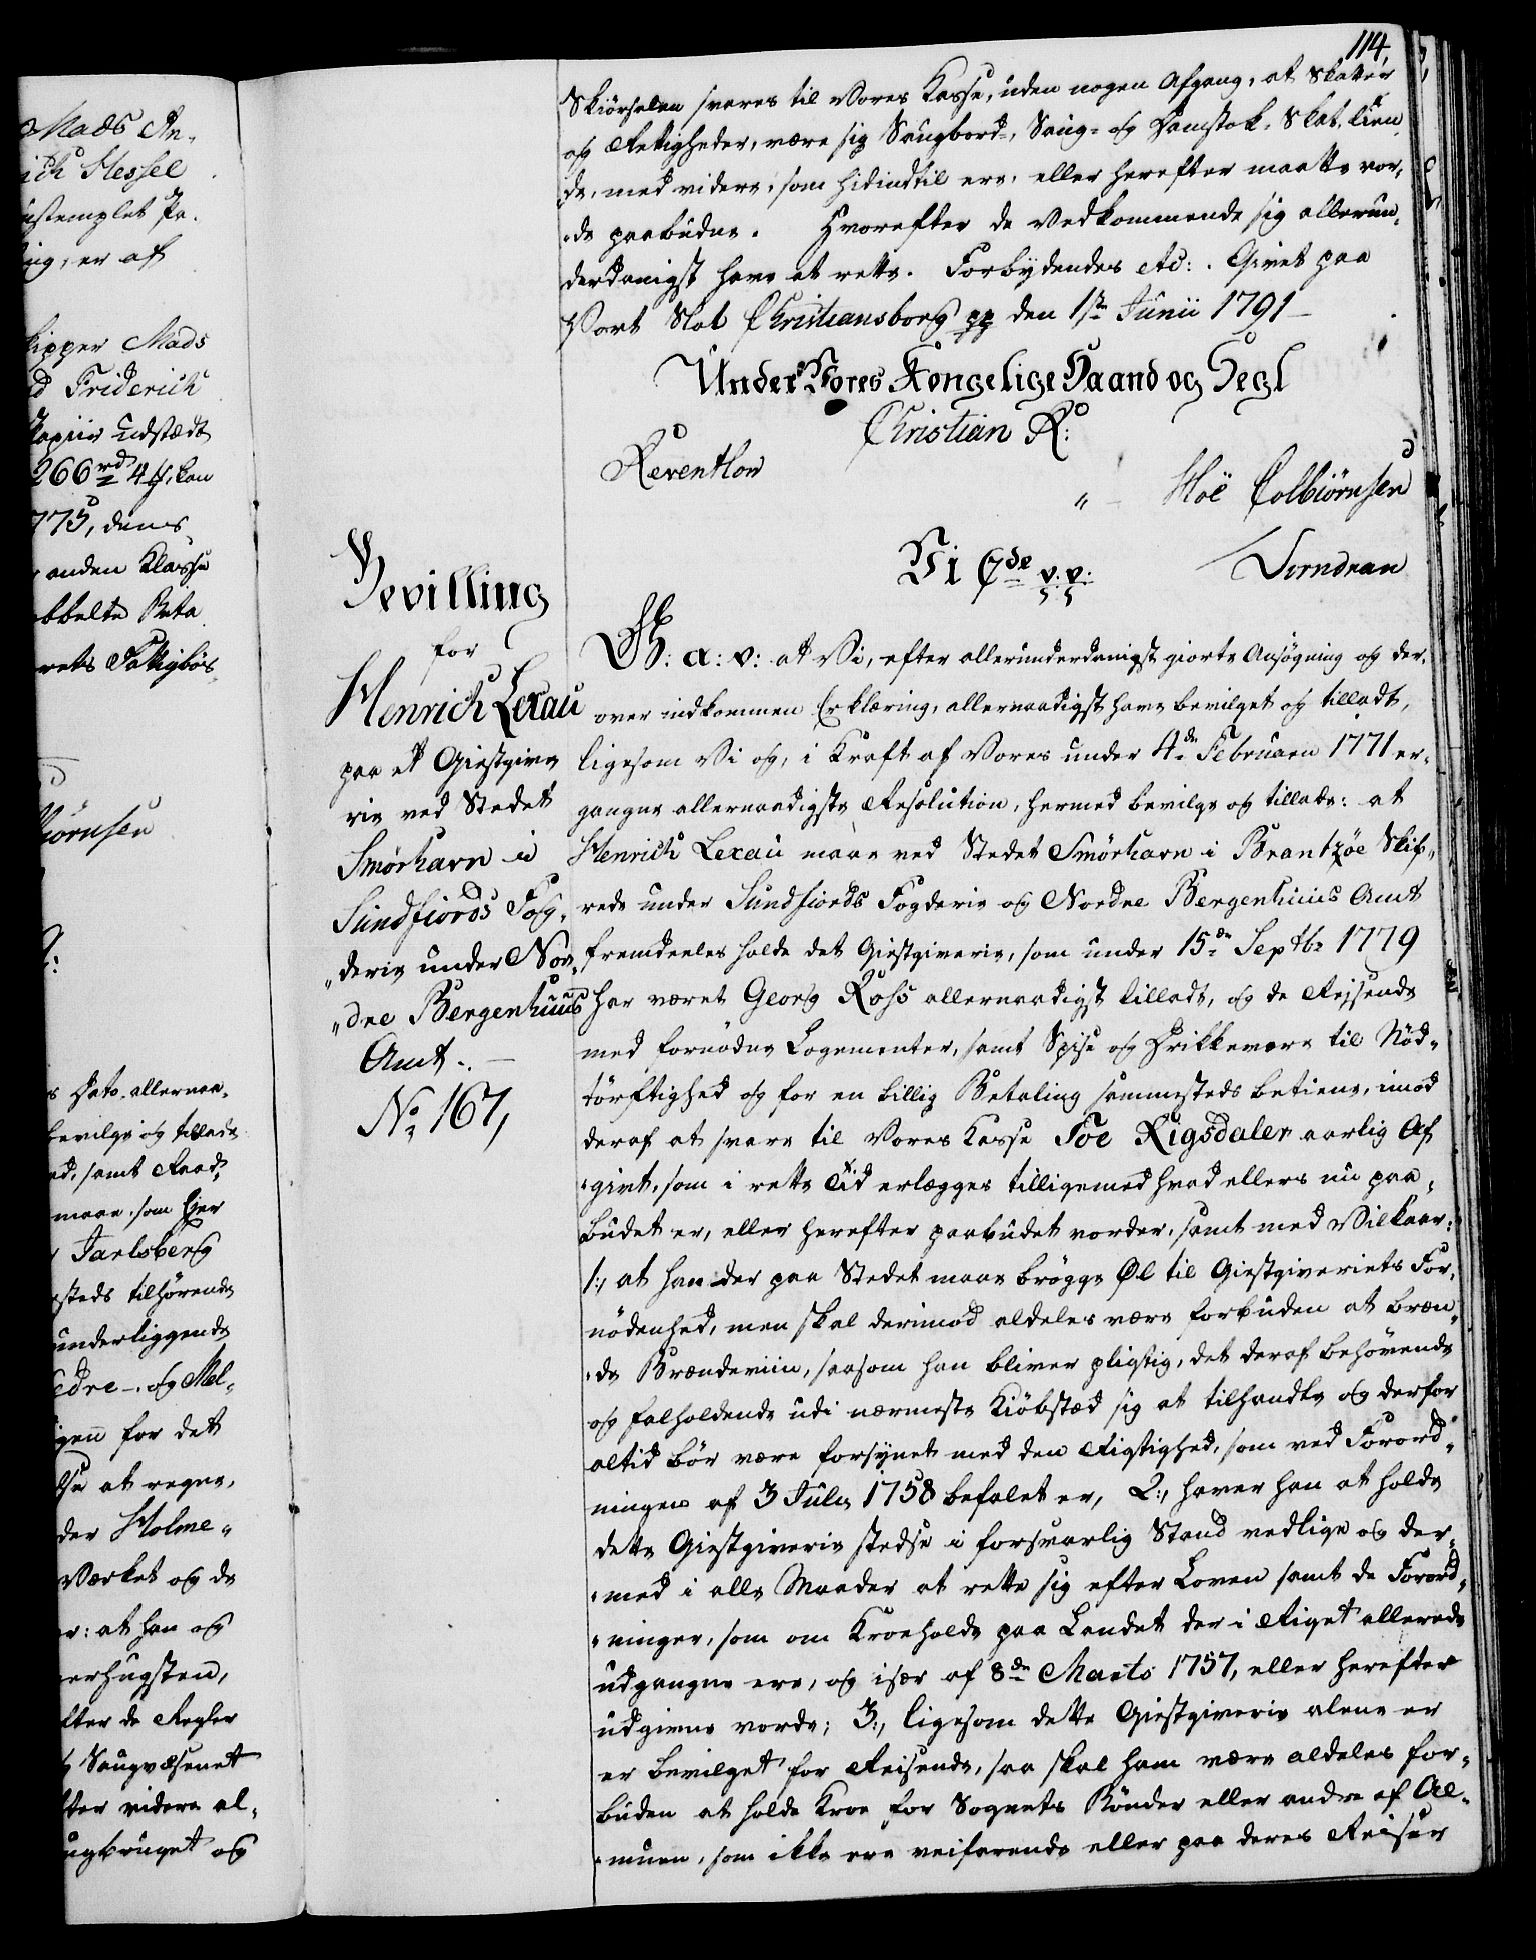 Mads An-
ich Hessel
ustemplet Pa-
ing, er af
kipper Mads
d Friderich
Papiir Udstædt
266 rd 4 ß, kan
775, dens
anden Klasse
bbelte Beta
rets Fattigbös-
iörnsen
s Dato, allernaa-
bevilge og tillade
ed, samt Raad,
maae, som Ejer
Jarlsberg
steds tilhörende
underliggende
edre-. og Mel-
gen for det
lse at regne,
der Holme-
Værket og de
er: at han og
erhugsten,
fter de Regler
Saugvæsenet
fter videre al-
ugbruget og
114,
Skiörselen svares til Vores Kasse, uden nogen Afgang, at Skatter
og Rettigheder, være sig Saugbord-, Saug- og Damstok-Skat, tien-
de, med videre, som hidindtil ere, eller herefter maatte vor-
de paabudne. Hvorefter de Vedkommende sig allerun-
derdanigst have at rette. Forbydendes etc:. Givet paa
Vort Slot Christiansborg pp den 1ste Junii 1791 –
Under Vores Kongelige Haand og Segl
Christian R:
Reventlow
" – Hoë Colbiörnsen
Vi C 7de v: v:
Dorndran
Bevilling
for
Henrich Lexau
paa et Giestgive
rie ved Stedet
Smörhavn i
Sundfiords Fog-
derie under Nor-
dre Bergenhuus
Amt.. –
No 167,
G: a: v: at Vi, efter allerunderdanigst giorte Ansögning og der-
over indkommen Erklæring, allernaadigst have bevilget og tilladt,
ligesom Vi og, i Kraft af Vores under 4de Februarii 1771 er-
gangne allernaadigste Resolution, hermed bevilge og tillade: at
Henrich Lexau maae ved Stedet Smörhavn i Brantzöe Skib-
rede under Sundfiords Fogderie og Nordre Bergenhuus Amt
fremdeeles holde det Giestgiverie, som under 15de Septbr 1779
har været Georg Rohs allernaadigst tilladt, og de Rejsende
med fornödne Logementer, samt Spise og Drikkevare til Nöd-
törftighed og for en billig Betaling sammesteds betiene, imod
deraf at svare til Vores Kasse Toe Rigsdaler aarlig Af
givt, som i rette Tid erlægges tilligemed hvad ellers nu paa-
budet er, eller herefter paabudet vorder, samt med Vilkaar:
1:, at han der paa Stedet maae brögge Øl til Giestgiveriets For-
nödenhed, men skal derimod aldeles være forbuden at bræn-
de Brændeviin, saasom han bliver pligtig, det deraf behövende
og falholdende udi nærmeste Kiöbsted sig at tilhandle og derfor
altid bör være forsynet med den Rigtighed, som ved Forord-
ningen af 3 Julii 1758 befalet er, 2:, haver han at holde
dette Giestgiverie stedse i forsvarlig Stand vedlige og der-
med i alle Maader at rette sig efter Loven samt de Forord-
ninger, som om Kroehold paa Landet der i Riget allerede
udgangne ere, og især af 8de Marts 1757, eller herefter
udgivne vorde; 3:, ligesom dette Giestgiverie alene er
er bevilget for Reisende, saa skal ham være aldeles for-
buden at holde Kroe for Sognets Bönder eller andre af Al-
muen, som ikke ere veifarende eller paa deres Reiser